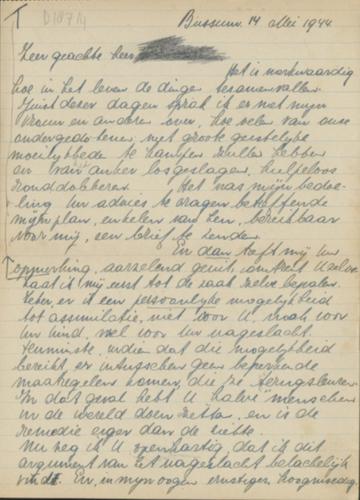 D1871
Bussum, 14 Mei 1944.
Zeer geachte heer
Het is merkwaardig
hoe in het leven de dingen samenvallen.
Juist dezer dagen sprak ik er met mijn
vrouw en anderen over, hoe velen van onze
ondergedokenen met groote geestelijke
moeilijkheden te kampen zullen hebben
en van anker losgeslagen, hulpeloos
ronddobberen. Het was mijn bedoe-
ling Uw advies te vragen betreffende
mijn plan, enkelen van hen, bereikbaar
voor mij, een brief te zenden.
En dan treft mij Uw
opmerking, aarzelend geuit, omtrent
Laat ik mij eerst tot de zaak zelve bepalen.
Zeker, er is een persoonlijke mogelijkheid
tot assimilatie, niet voor U, noch voor
Uw kind, wel voor Uw nageslacht.
Tenminste, indien dat die mogelijkheid
bereikt, er intusschen geen beperkende
maatregelen komen, die ze terugsleuren.
In dat geval hebt U halve menschen
in de wereld doen zetten, en is de
remedie erger dan de ziekte.
Nu zeg ik U openhartig, dat ik dit
argument van het nageslacht belachelijk
vindt. Er, in mijn oogen ernstiger, hoogmoedig